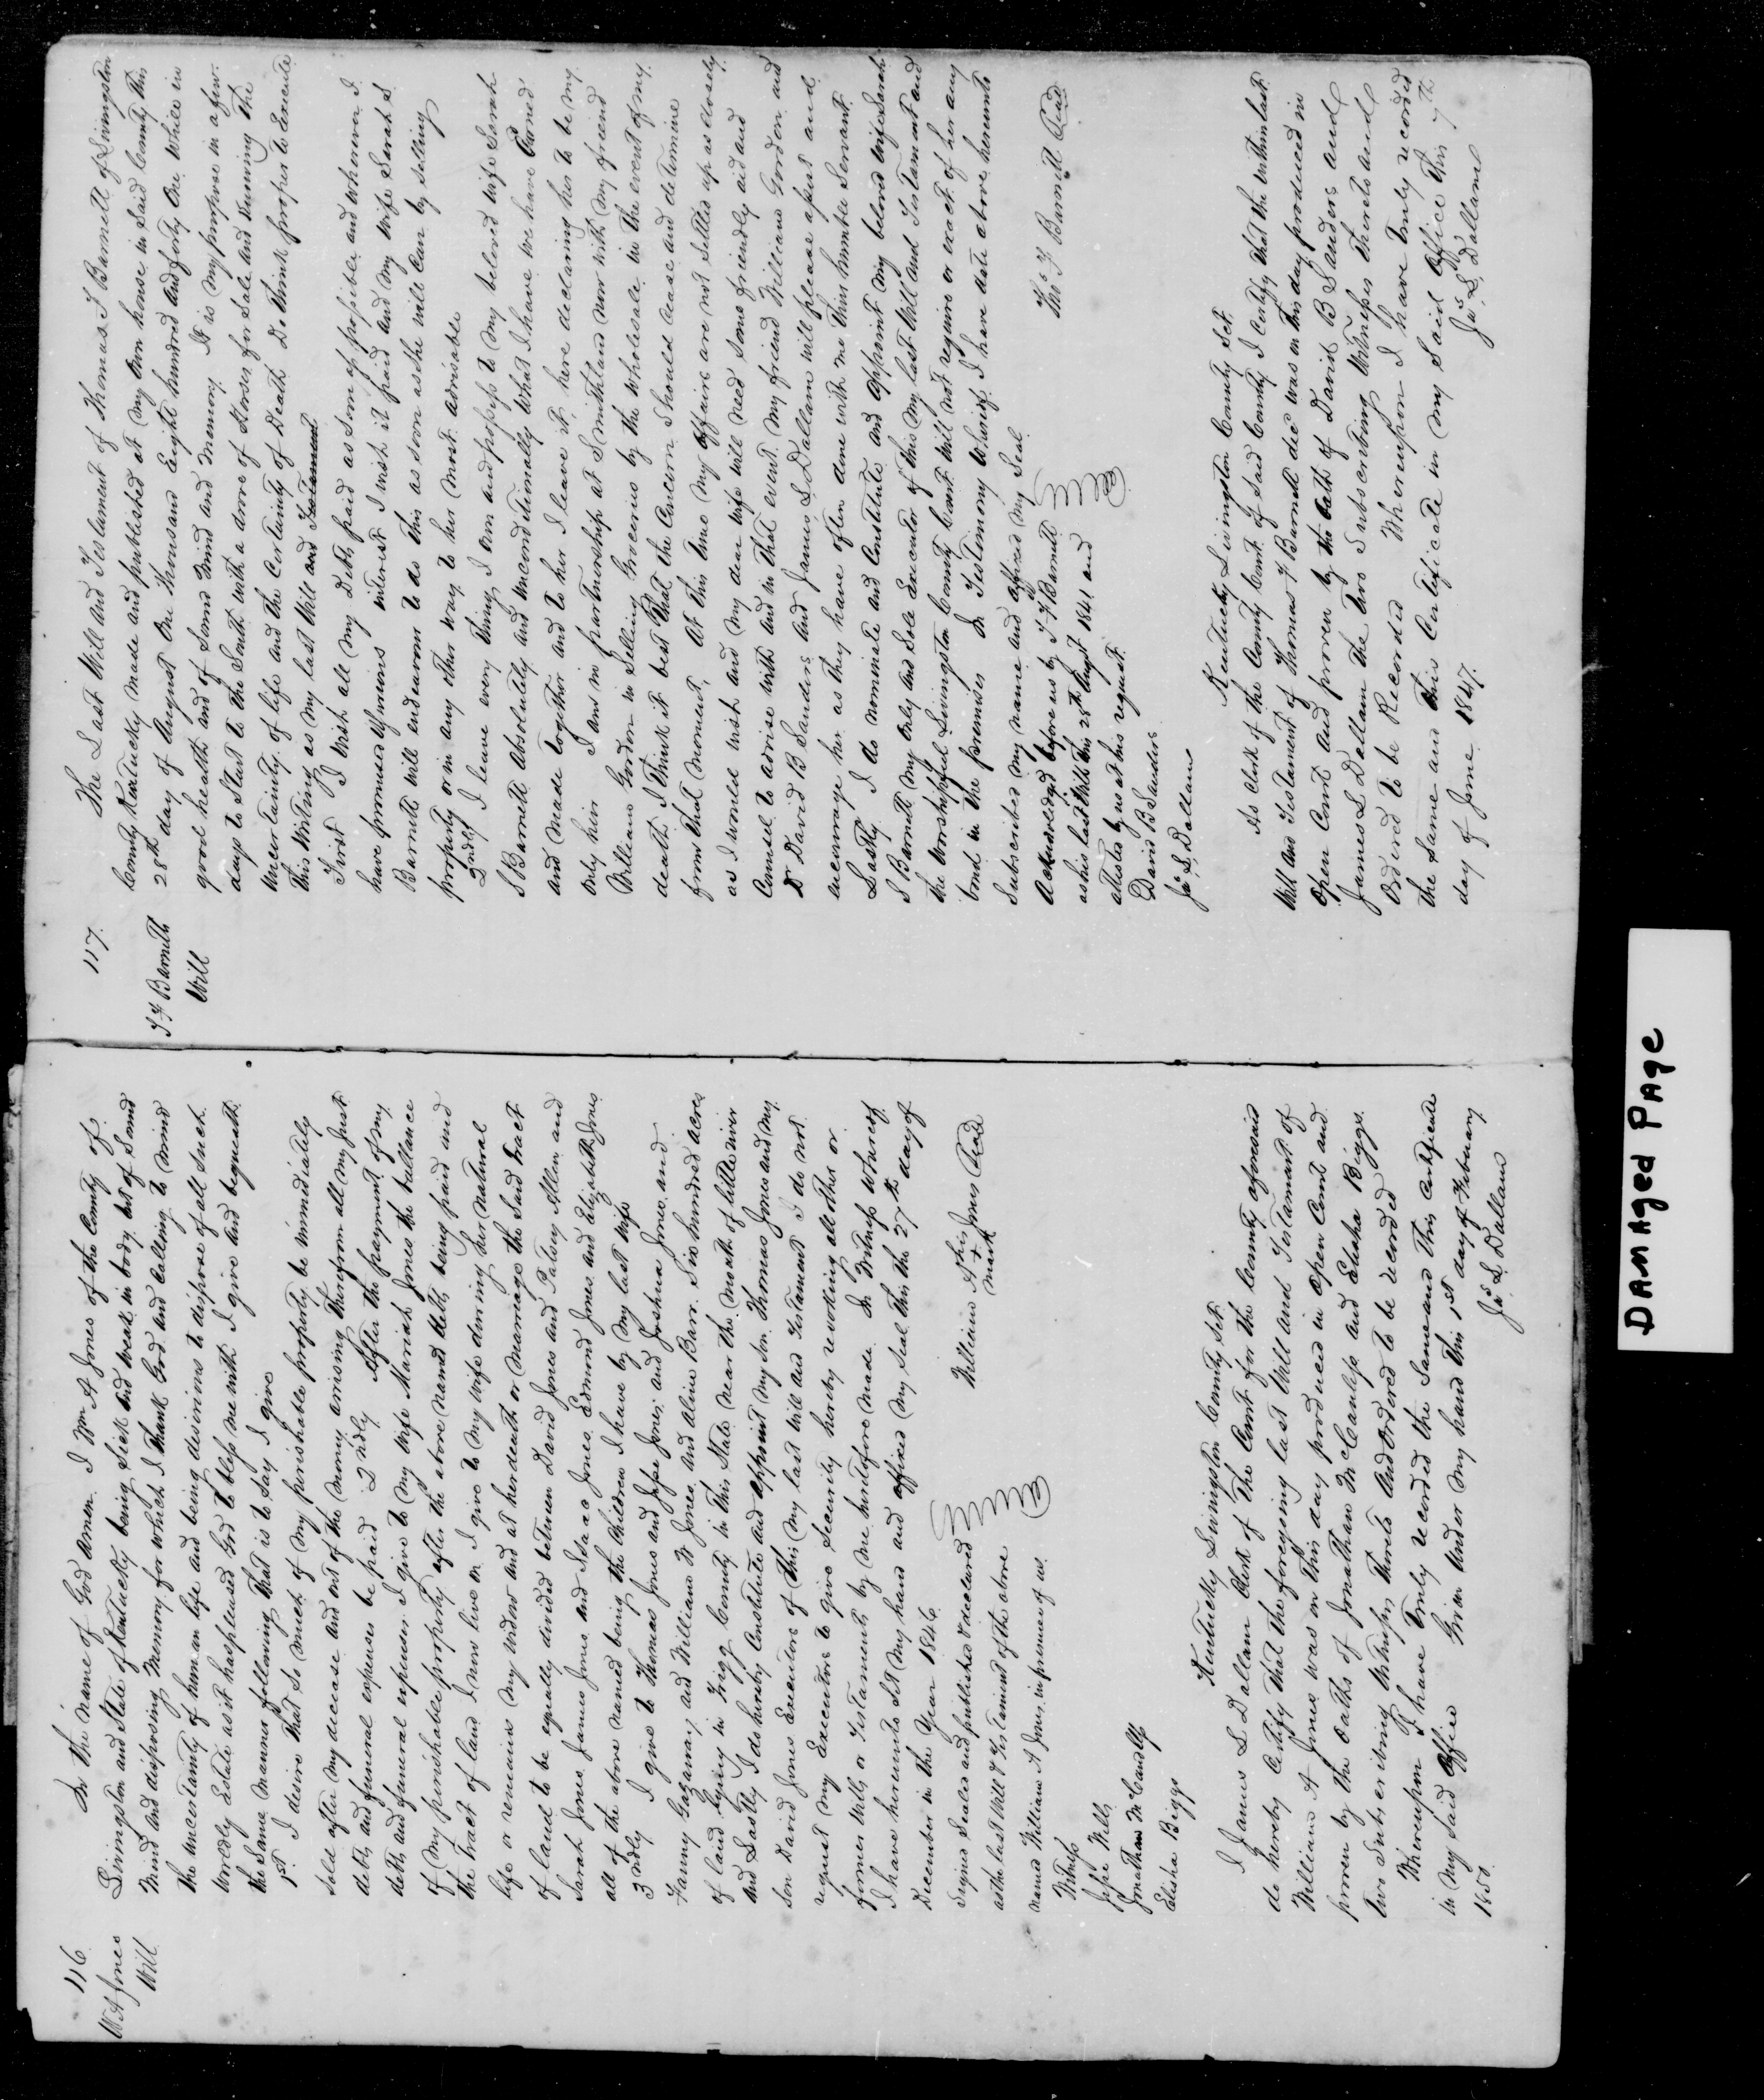 116
W A Jones
Will
In the name of God amen. I Wm A Jones of the County of
Livingston and State of Kentucky being Sick and weak in body but of Sound
Mind and disposing Memory for which I thank God and calling to mind
the uncertainty of human life and being desirous to dispose of all such
worldly Estate as it has pleased God to bless me with I give and bequeath
the Same manner following that is to Say I give
1st I desire that So much of my perishable property be immediately
Sold after my decease and out of the money arising therefrom all my Just
debts and funeral expenses be paid 2ndly After the payment of my
debts and funeral expenses I give to my wife Mariah Jones the ballance
of my perishable property after the above named debts being paid and
the tract of land I now live on I give to my wife during her natural
life or remains my widow and at her death or marriage the Said tract
of land to be equally divided between David Jones and Patsey Allen and
Sarah Jones James Jones and Isaac Jones Edmond Jones and Elizabeth Jones
all of the above named being the Children I have by my last wife
3ndly I give to Thomas Jones and Jesse Jones and Joshua Jones and
Fanny Gasaway and William W Jones and Aline Barr. Six hundred acres
of land Lying in Trigg County in this State near the mouth of little river
And Lastly I do hereby Constitute and appoint my Son Thomas Jones and my
Son David Jones Executors of this my last Will and Testament I do not
request my Executors to give Security hereby revoking all other or
former Wills or Testaments by me heretofore made In Witness whereof
I have hereunto Set my hand and affixed my Seal this the 27th day of
December in the Year 1846
Signed Sealed and published & declared
as the last Will & Testament of the above
named William A Jones in presence of us
William A his + mark Jones Seal
Witness
Jesse Wells
Jonathan McCandless
Elisha Biggs
Kentucky Livingston County Sct.
I James L Dallam Clerk of the Court for the County aforesaid
do hereby Certify that the foregoing last Will and Testament of
William A Jones was on this day produced in open Court and
proven by the Oaths of Jonathan McCanless and Elisha Biggs
two Subscribing Witnesses thereto And Ordered to be recorded
Whereupon I have truly recorded the Same and this Certificate
in my Said office Given Under my hand this 1st day of February
1850.
Jas L Dallam
117.
T F Barnett
Will
The Last Will and Testament of Thomas F Barnett of Livingston
County Kentucky made and published at my own house in Said County this
28th day of August One thousand Eight hundred and forty One while in
good health and of Sound mind and memory It is my purpose in a few
days to Start to the South with a drove of Horses for Sale and knowing the
uncertainty of life and the Certainty of Death Do think proper to Execute
this Writing as my last Will and Testament
First I wish all my Debts paid as Soon as possible and wherever I
have promised Spurious interest I wish it paid and my Wife Sarah S
Barnett will endeavour to do this as soon as She will Can by Selling
property or in any other way to her most advisable
2ndly I leave every thing I own and possess to my beloved wife Sarah
S Barnett Absolutely and unconditionally What I have we have Earned
and made together and to her I leave it, here declaring her to be my
only heir I am in partnership at Smithland now with my friend
William Gordon in Selling Groceries by the wholesale in the event of my
death I think it best that the Concern Should cease and determine
from that moment, At this time my Affairs are not Settled up as closely
as I would wish and my dear wife will need Some friendly aid and
Counsel to advise with and in that event my friend William Gordon and
Dr David B Sanders and James L Dallam will please assist and
encourage her as they have often done with me Their humble Servant
Lastly I do nominate and Constitute and appoint my beloved wife Sarah
S Barnett my Only and Sole Executor of this my last Will and Testament and
the worshipful Livingston County Court will not require or exact of her any
bond in the premises In Testimony whereof I have date above hereunto
Subscribed my name and affixed my Seal
Thos F Barnett Seal
Acknowledged before us by T F Barnett
as his last Will this 28th August 1841 and
attested by us at his request
David B Sanders
Jas L Dallam
Kentucky Livingston County Sct.
As Clerk of the County Court of Said County I Certify that the within last
Will and Testament of Thomas F Barnett decd was on this day produced in
Open Court and proven by the Oath of David B Sanders and
James L Dallam the two Subscribing Witnesses thereto and
Ordered to be Recorded Whereupon I have truly recorded
the Same and this Certificate in my Said Office this 7th
day of June 1847.
Jas L Dallam
DAMAGED PAGE